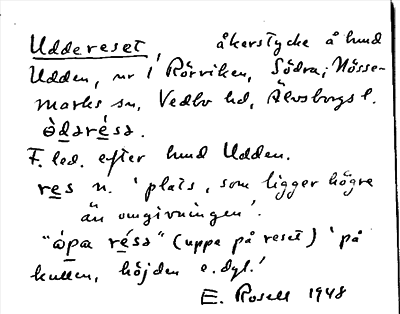 Uddereset, åkerstycke å hmd
Udden, nr 1 Rörviken, Södra; Nösse-
marks sn, Vedbo hd, Älvsborgs l.
òdəré̱sə.
F. led. efter hmd Udden.
res n. 'plats, som ligger högre
än omgivningen'.
"ɷ́pa ré̱sə" (uppe på reset) 'på
kullen, höjden o. dyl.'
E. Rosell 1948